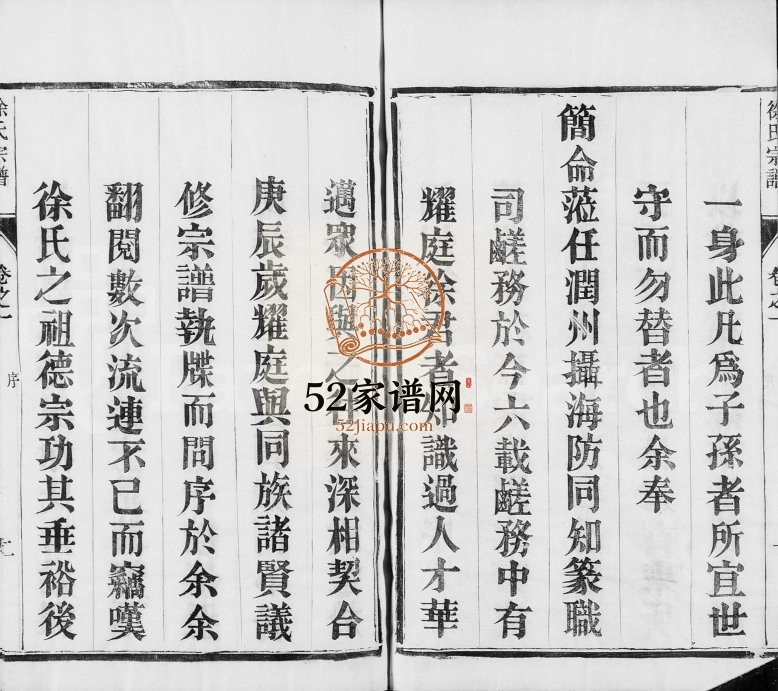 一身此凡爲子孫者所宜世
守而勿替者也余奉
簡侖蒞任潤州攝海防同知篆職
司鹺務於今六載鹺務中有
耀庭徐君者知識過人才華
邁眾出與之來深相契合
庚辰歲耀庭與同族諸賢議
修宗譜執牒而問序於余余
翻閱數次流連不已而竊嘆
徐氏之祖德宗功其垂裕後
徐氏宗譜
徐氏宗譜
卷之一
序
52家谱网
52jiapu.com